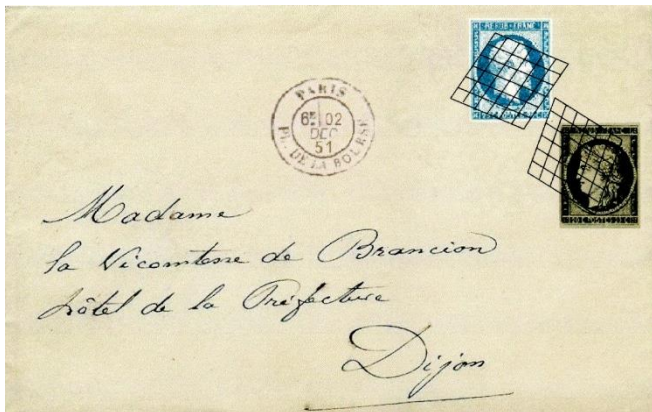 PARIS
6E 02
DEC
51
PL. DE LA BOURSE
Madame
la Vicomtesse de Brancion
hôtel de la Préfecture
Dijon